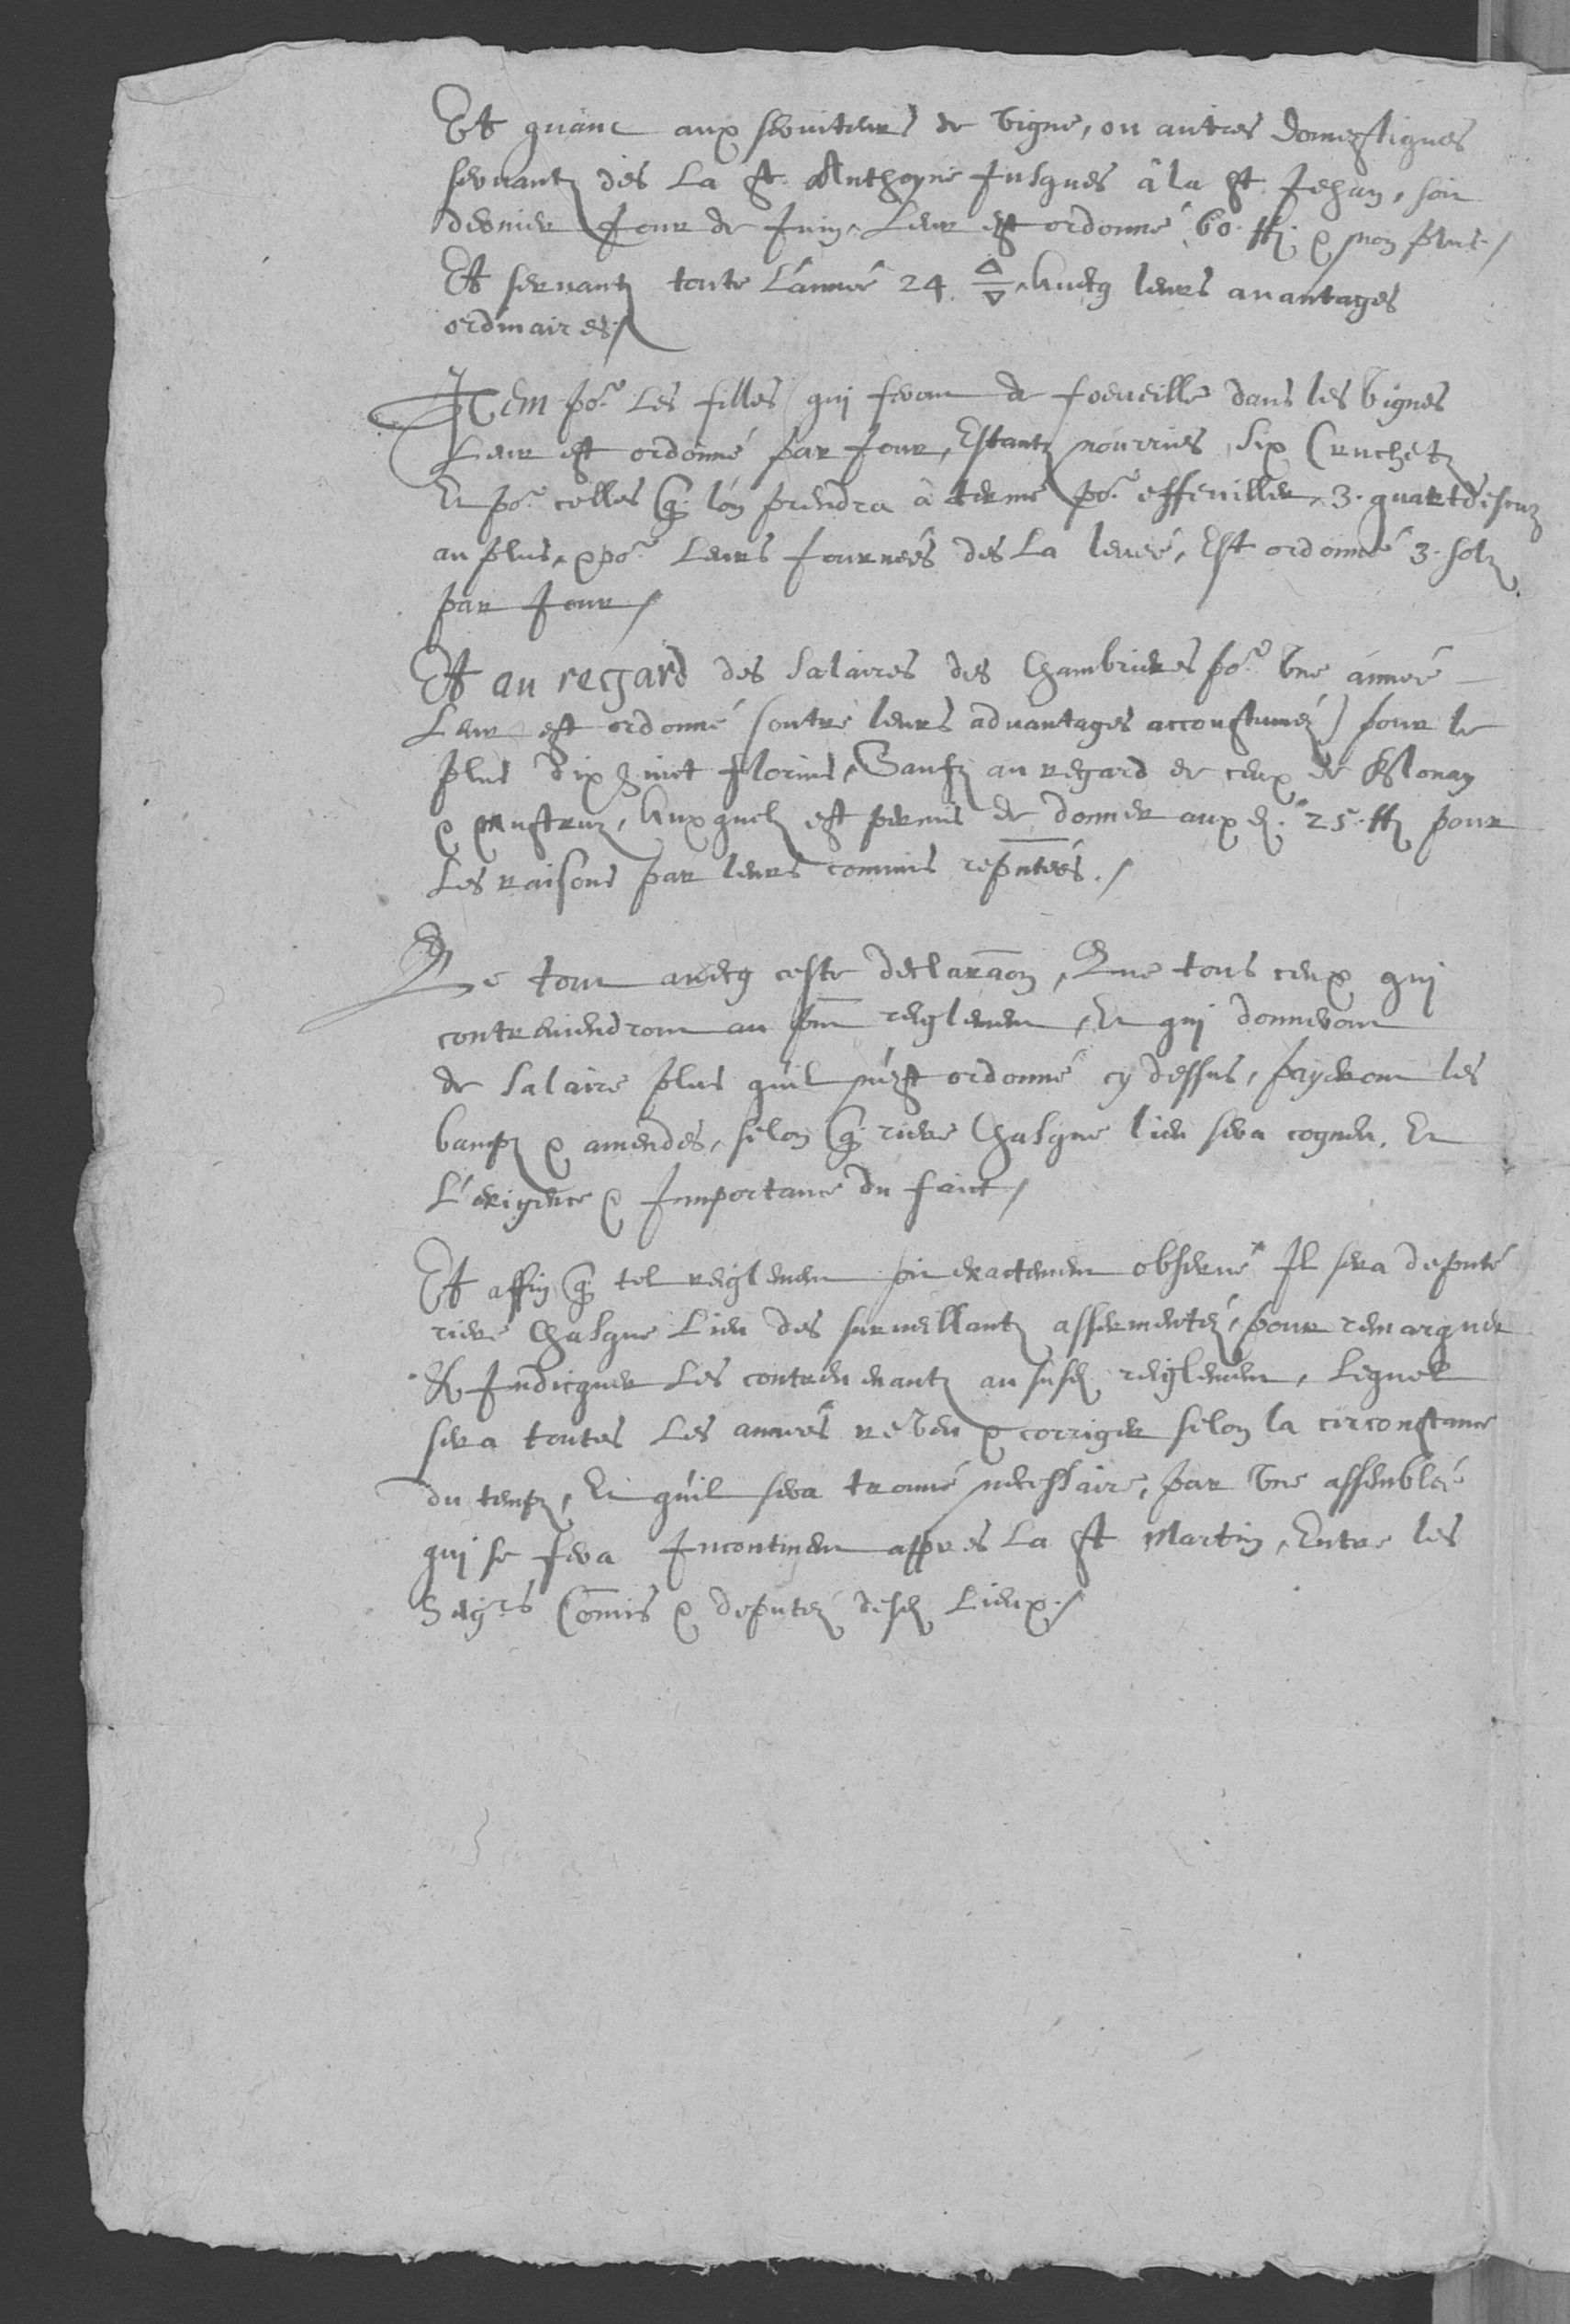 Et quant aux seruiteurs de vigne, ou autres domestiques
seruantz dés La st Anthoyne Jusques â la st Jehan, soit
dernier Jour de Juin, Leur est ordonné 60. ff. & non plus./
Et seruantz toute L'année 24. Auecq leurs auantages
ordinaires./
Item po.r Les filles qui feront de foeueille dans les vignes
Leur est ordonné par Jour, Estantz nourries, Six Cruchetz
Et po.r celles q. lón prendra à terme po.r effeuiller, 3. quartdescuz
au plus, & po.r Leurs Journeés des La leueé, Est ordonné 3. solz
par Jour /
Et au regard des Salaires des Chambrieres po.r vne anneé
Leur est ordonné (outre leurs aduantages accoustuméz) pour le
plus dix huict florins, Saufz au regard de ceux de Blonay
& Mustruz, Auxquelz est permis de donner aux d. 25. ff pour
Les raisons par leurs commis reputeés./
Le tout auecq ceste declaraon, Que tous ceux qui
contreuiendront au pnt reiglement, Et qui donneront
de Salaire plus quil n'est ordonné cy dessus, payeront les
bampz & amendes, selon q. riere Chasque lieu sera cogneu, Et
L'exigence & Jmportance du faict /
Et affin q. tel reiglement soit exactement obserué Jl sera deputé
riere Chasque Lieu des surueillantz assermentéz, pour remarquer
& Jndicquer Les contreuenantz au susd. reiglement, Lequel
sera toutes Les anneés reveu & corriger selon la circonstance
du tempz, Et quil sera trouué necessaire, par vne assembleé
qui se fera Jncontinent appres La st Martin, Entre les
Seig.rs Comis & deputéz desd. Lieux./